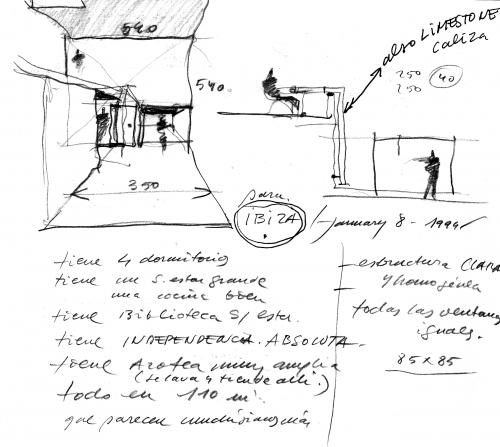 540
540.
also LIMESTONE.
caliza
250
250
40
350
para.
IBIZA
January 8 - 1994
tiene 4 dormitorio
tiene un S. estar grande
una cocina bien
tiene Biblioteca S/ estar.
tiene INDEPENDENCIA. ABSOLUTA.
tiene Azotea muy amplia
(se lava y tiende allí.)
todo en 110 m²
que parecen muchísimos más
estructura CLARA
y homogénea
todas las ventanas
iguales.
85 x 85